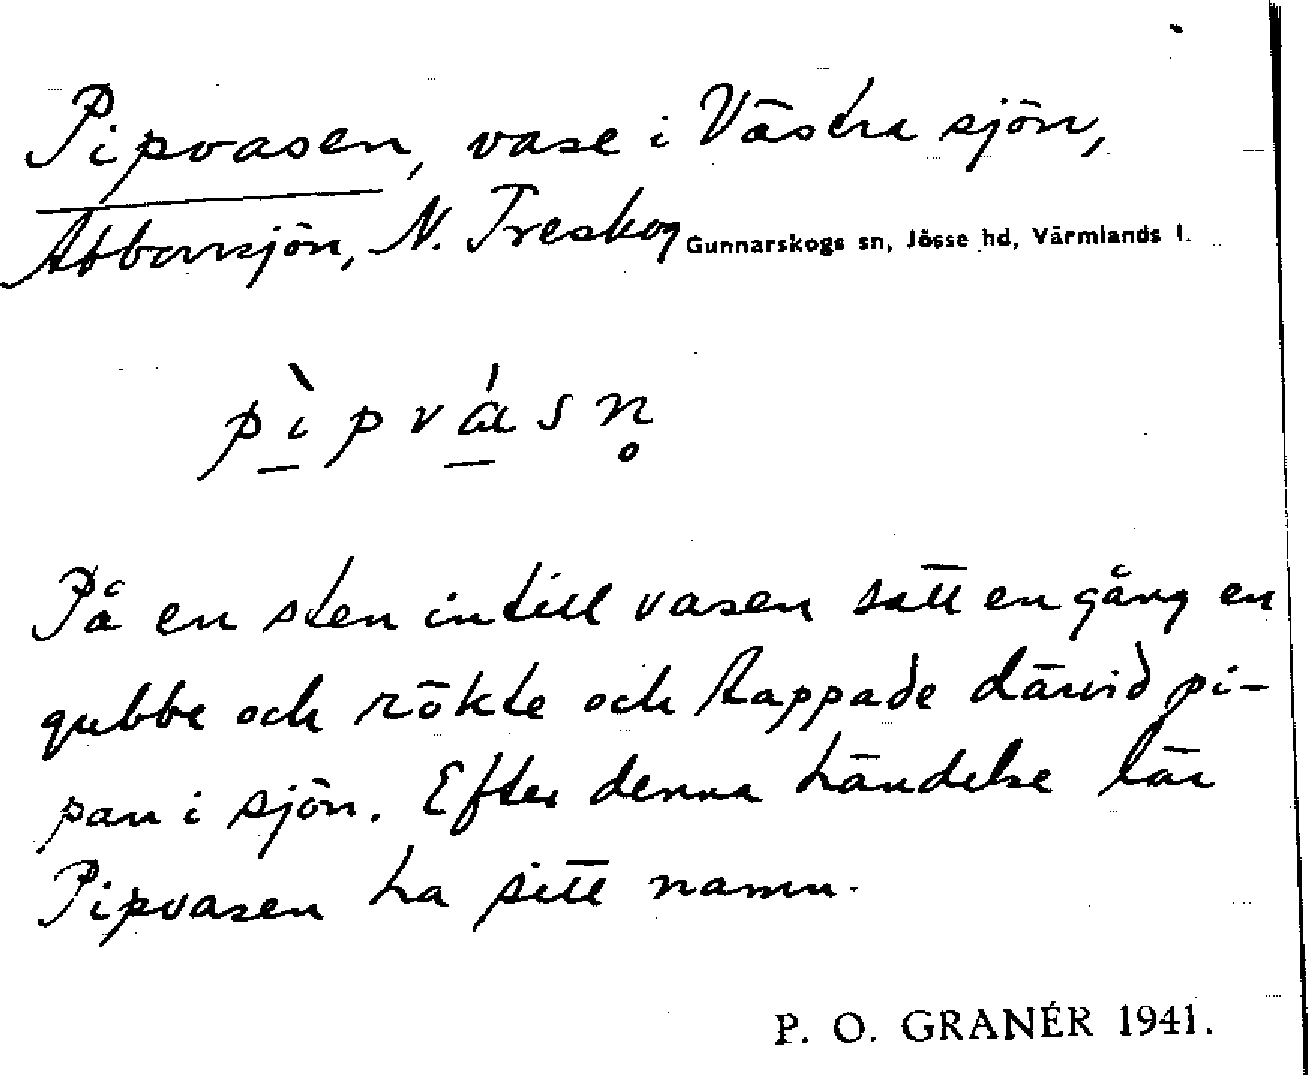 Pipvasen, vase i Västra sjön,
Abborrsjön, N. Treskog Gunnarskogs sn, Jösse hd, Värmlands l.
pìpvásn̥
På en sten intill vasen satt en gång en
gubbe och rökte och tappade därvid pi-
pan i sjön. Efter denna händelse lär
Pipvasen ha sitt namn.
P. O. GRANÉR 1941.